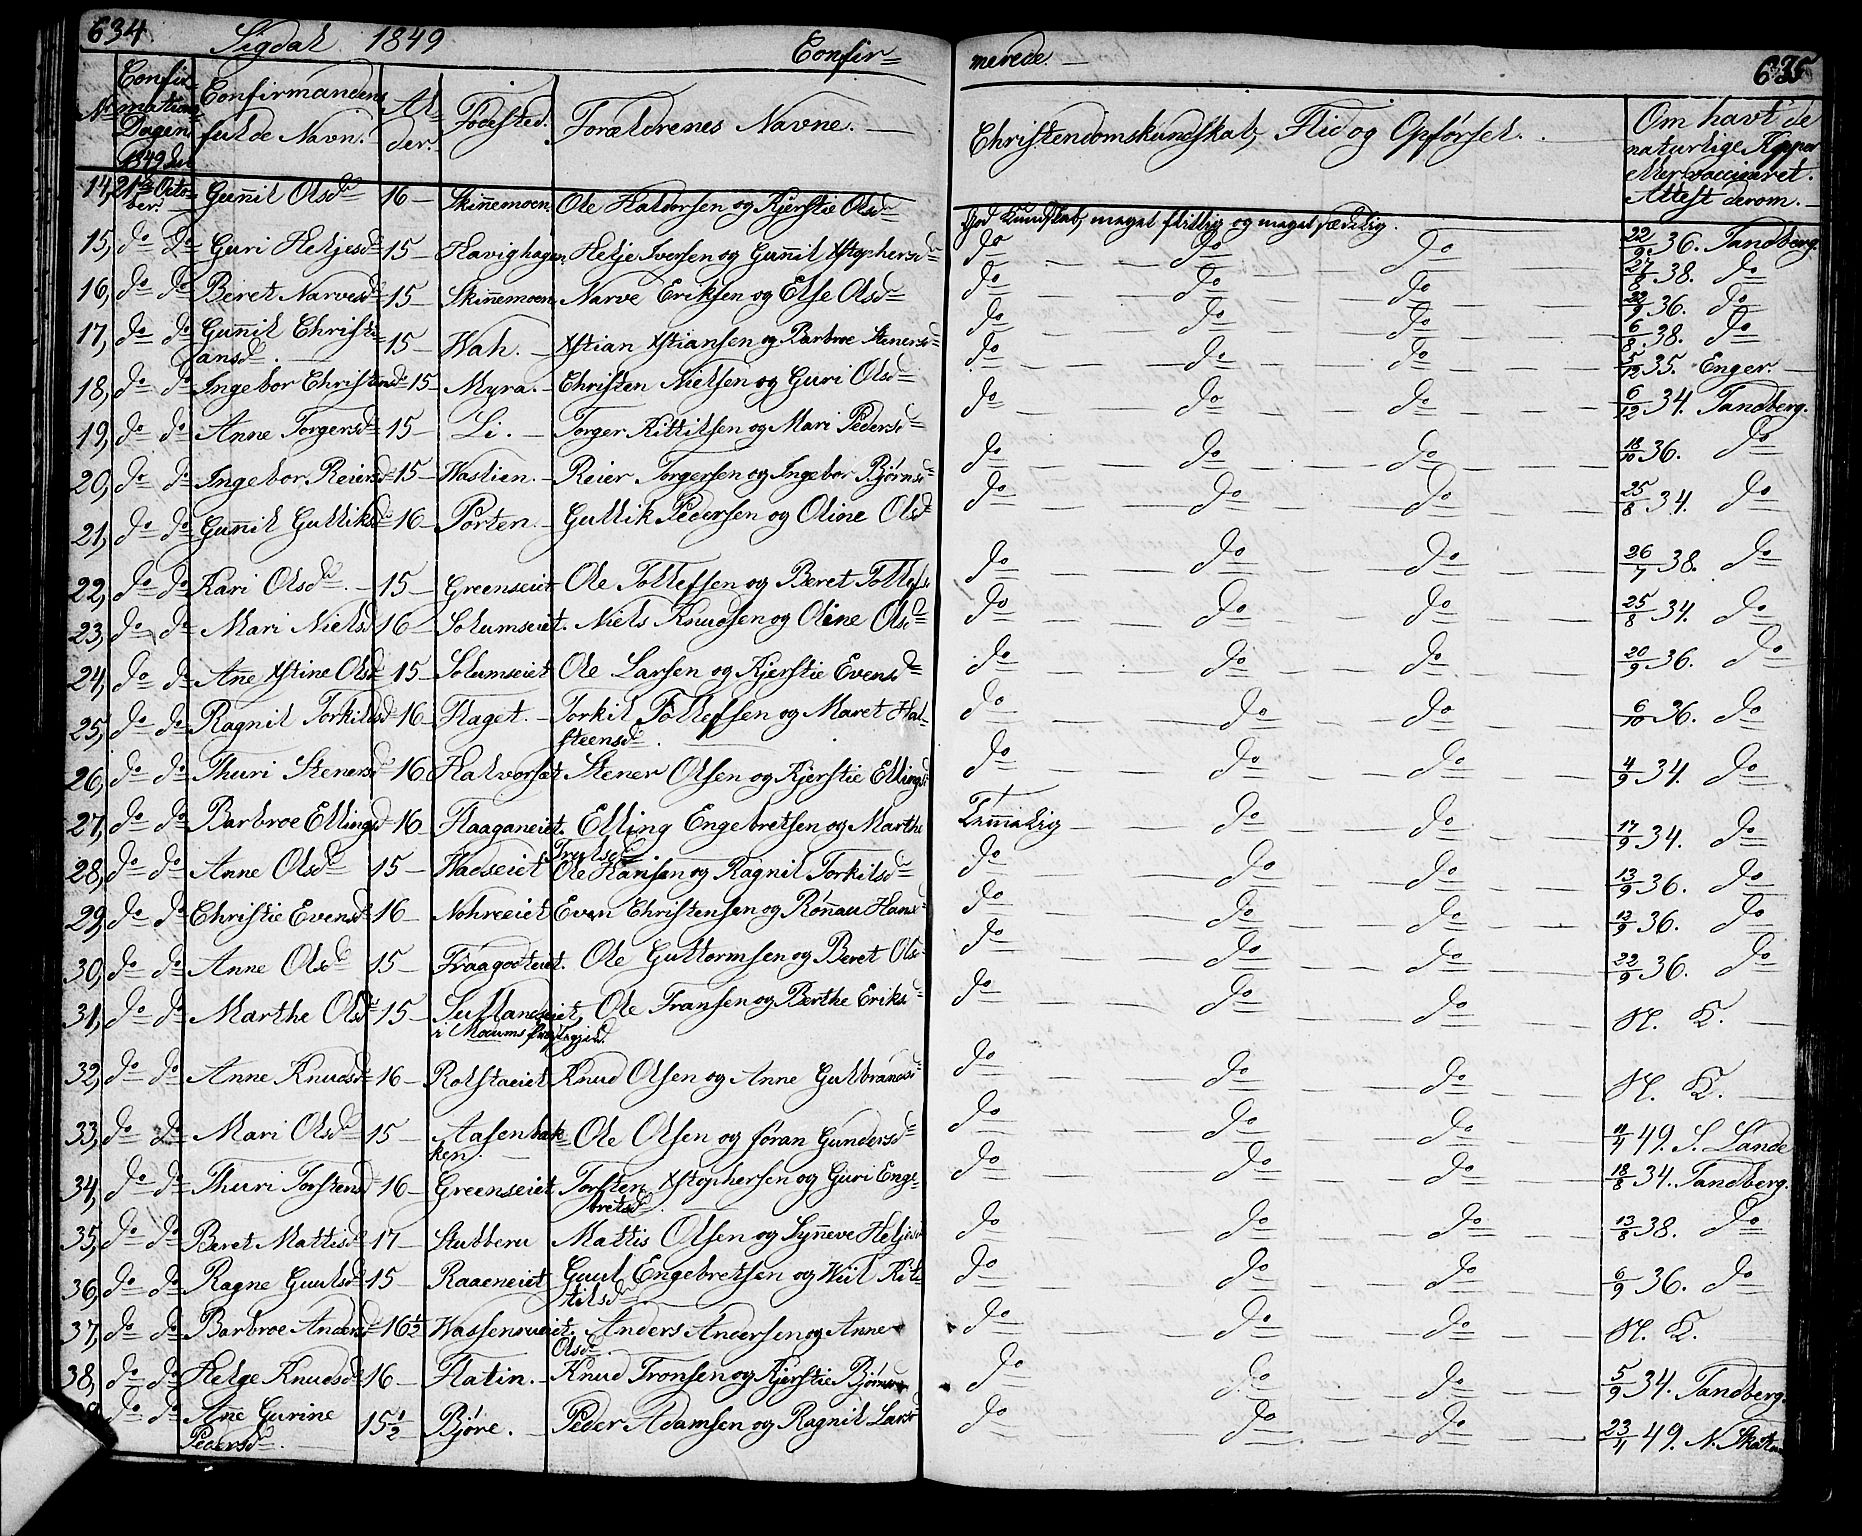 634 Sigdal 1849 Confir=
merede. — 635
No
Confir
mations
Dagen
1849 den
Confirmandens
fulde Navn.
Al
der.
Fødested.
Forældrenes Navne. —
Christendomskundskab, Flid og Opførsel.
Om havt de
naturlige Kopper
eller vaccineret.
Attest derom. —
14, 21de Octo
ber. Gunnil Olsdr 16 — Skinnemoen. Ole Halvorsen og Kjerstie Olsdr God Kundskab, meget flittig og meget sædelig. 22/9 36. Tandberg.
15, do do Guri Heljesdr 15 — Havighagen, Helje Iversen og Gunnil Xstophersdr do do do 27/8 38. do
16, do do Beret Narvesdr 15 — Skinnemoen, Narve Eriksen og Else Olsdr do do do 22/9 36. do
17, do do Gunil Christi
ansdr. 15 — Wah. — Xstian Xstiansen og Barbroe Stenersdr do do do 6/8 38. do
18, do do Ingebor Christensdr 15 Myra. — Christen Nielsen og Guri Olsdr do do do 5/12 35. Enger —
19, do do Anne Torgersdr 15 — Li. — Torger Kittilsen og Mari Pedersdr do do do 6/12 34. Tandberg.
20, do do Ingebor Reiersdr 15 — Wastien. — Reier Torgersen og Ingebor Bjørnsdr do do do 18/10 36. do
21, do do Gunnil Gulliksdr 16 — Porten. — Gullik Pedersen og Oline Olsdr do do do 25/8 34. do
22, do do Kari Olsdr. — 15 — Greenseiet Ole Tollefsen og Beret Tollefs do do do 26/7 38. do
23, do do Mari Nielsd 16 — Solumseiet. Niels Knudsen og Oline Olsdr do do do 25/8 34. do
24, do do Ane Xstine Olsd 15 — Solumseiet Ole Larsen og Kjerstie Evensdr do do do 20/9 36. do
25, do do Ragnil Torkildsdr 16 Flaget. — Torkil Tollefsen og Maret Hal=
steensdr. do do do 6/10 36. do
26, do do Thuri Stenersd 16 Halvorsæt Stener Olsen og Kjerstie Ellingsd do do do 4/9 34. do
27, do do Barbroe Ellingsd 16 — Haaganeiet. Elling Engebretsen og Marthe Temmelig do do 17/9 34. do
28, do do Anne Olsdr 15 — Wadseiet Ole Hansen og Ragnil Torkilsdr do do do 13/9 36. do
29, do do Christie Evensdr 16 — Nohreeiet Even Christensen og Rønnau Hansdr do do do 12/9 36. do
30, do do Anne Olsdr 15 — Fraagodteiet. Ole Guttormsen og Beret Olsdr do do do 22/9 36. do
31, do do Marthe Olsdr 15 — Sullandseiet, Ole Fransen og Berthe Eriksdr do do do N. K. —
i Modums Præstegjeld.
32, do do Anne Knudsdr 16 — Rolstadeiet Knud Olsen og Anne Gulbrandsdr do do do N. K. —
33, do do Mari Olsdr 15 — Aasenbak=
ken. Ole Olsen og Jøran Gundersdr do do do 11/4 49. S. Lande
34, do do Thuri Torstensd 16 — Greenseiet Torsten Xstophersen og Guri Enge=
bretsdr. do do do 18/8 34. Tandberg.
35, do do Beret Mattisd 17 — Stubberu Mattis Olsen og Synneve Heljesd do do do 13/8 38. do
36, do do Ragne Guulsdr 15 Raaeneiet Guul Engebretsen og Wiil Kit=
tilsdr. do do do 6/9 36. do
37, do do Barbroe Andersdr 16 1/2 Wassenrueiet. Anders Andersen og Anne
Olsdr. do do do N. K.
38, do do Helge Knudsdr 16 — Flatin. — Knud Tronsen og Kjerstie Bjørns do do do 5/9 34. Tandberg.
do do Anne Gurine
Pedersdr. 15 1/2 Bjøre. — Peder Adamsen og Ragnil Larsdr do do do 23/4 49. N.